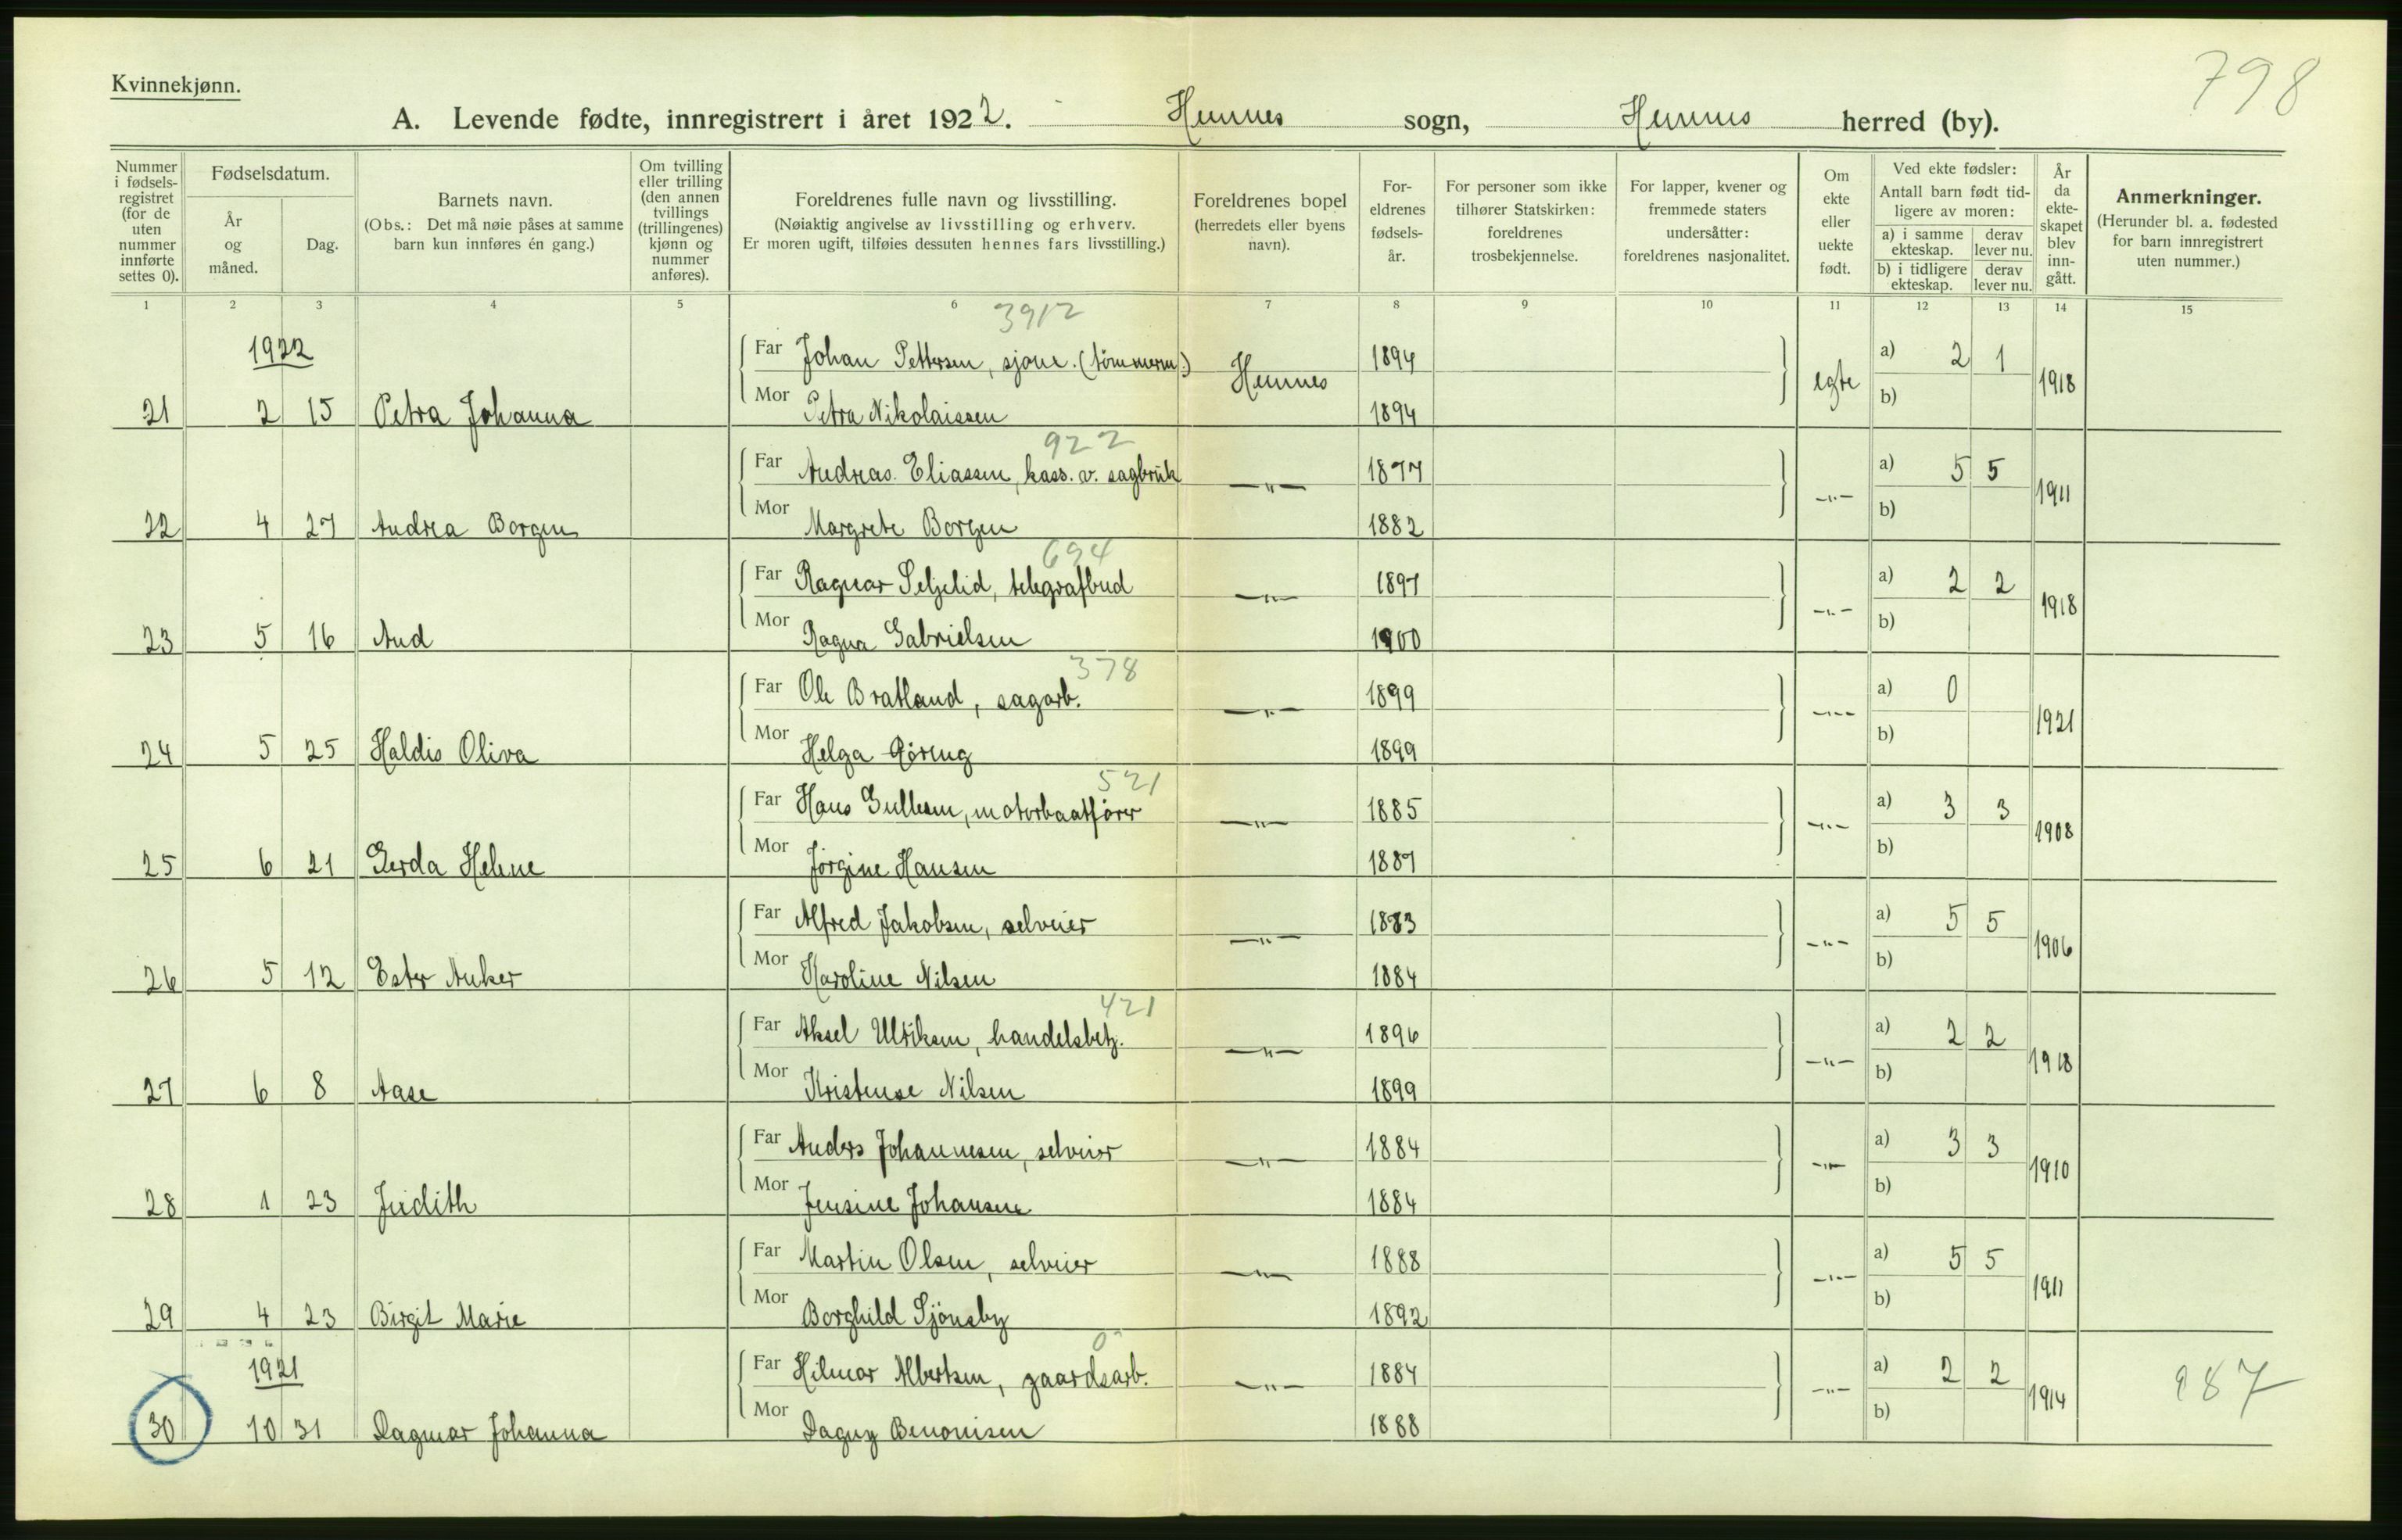 798
Kvinnekjønn.
A. Levende fødte, innregistrert i året 1922. Hemnes sogn, Hemnes herred (by).
Nummer i fødselsregistret (for de uten nummer innførte settes 0).
Fødselsdatum.
År og måned.
Dag.
Barnets navn.
(Obs.: Det må nøie påses at samme barn kun innføres én gang.)
Om tvilling eller trilling (den annen tvillings (trillingenes) kjønn og nummer anføres).
Foreldrenes fulle navn og livsstilling.
(Nøiaktig angivelse av livsstilling og erhverv.
Er moren ugift, tilføies dessuten hennes fars livsstilling.)
Foreldrenes bopel
(herredets eller byens navn).
Foreldrenes fødselsår.
For personer som ikke tilhører Statskirken: foreldrenes trosbekjennelse.
For lapper, kvener og fremmede staters undersåtter: foreldrenes nasjonalitet.
Om ekte eller uekte født.
Ved ekte fødsler:
Antall barn født tidligere av moren:
a) i samme ekteskap.
derav lever nu.
b) i tidligere ekteskap.
derav lever nu.
År da ekteskapet blev inngått.
Anmerkninger.
(Herunder bl. a. fødested for barn innregistrert uten nummer.)
1 2 3 4 5 6 7 8 9 10 11 12 13 14 15
3912
1922
Far Johan Pettersen, sjöm. (tömmerm.) Hemnes 1894 egte a) 2 1 1918
21 2 15 Petra Johanna Mor Petra Nikolaissen 1894 b)
922
Far Andreas Eliassen, kass. v. sagbruk —"— 1877 —"— a) 5 5 1911
22 4 27 Andrea Borgen Mor Margrete Borgen 1882 b)
694
Far Ragnar Seljelid, telegrafbud —"— 1897 —"— a) 2 2 1918
23 5 16 Aud Mor Ragna Gabrielsen 1900 b)
378
Far Ole Bratland, sagarb. —"— 1899 —"— a) 0 1921
24 5 25 Haldis Oliva Mor Helga 1899 b)
521
Far Hans Gullesen, motorbaatförer —"— 1885 —"— a) 3 3 1908
25 6 21 Gerda Helene Mor Jörgine Hansen 1887 b)
Far Alfred Jakobsen, selveier —"— 1883 —"— a) 5 5 1906
26 5 12 Ester Anker Mor Karoline Nilsen 1884 b)
421
Far Aksel Ulriksen, handelsbetj. —"— 1896 —"— a) 2 2 1918
27 6 8 Aase Mor Kristense Nilsen 1899 b)
Far Anders Johannesen, selveier —"— 1884 —"— a) 3 3 1910
28 1 23 Judith Mor Jensine Johansen 1884 b)
Far Martin Olsen, selveier —"— 1888 —"— a) 5 5 1911
29 4 23 Birgit Marie Mor Borghild Sjönsby 1892 b)
0
1921
Far Hilmar Albertsen, gaardsarb. —"— 1884 —"— a) 2 2 1914 987
30 10 31 Dagmar Johanna Mor Dagny Benonisen 1888 b)